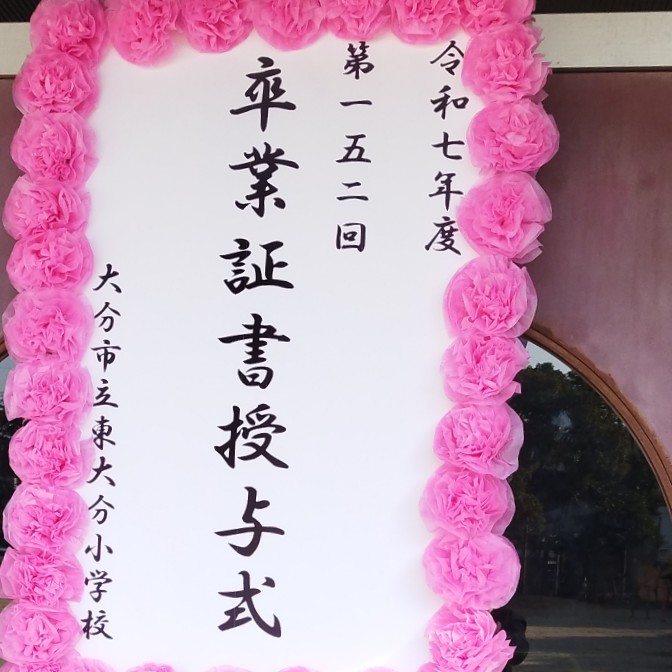 令和七年度
第一五二回
卒業証書授与式
大分市立東大分小学校